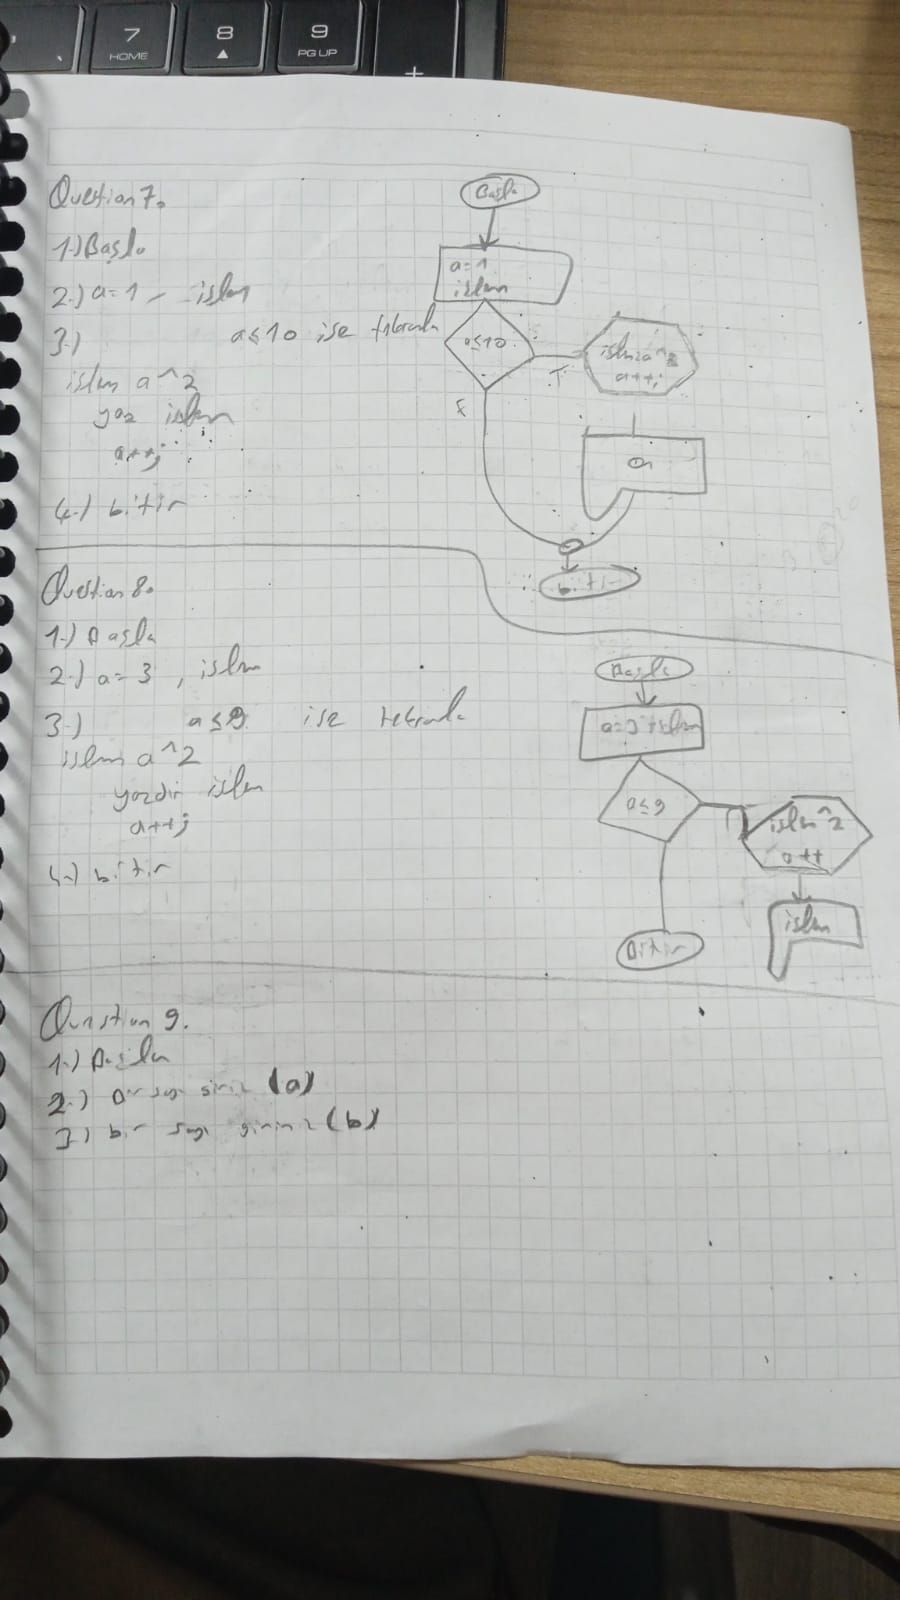 7
HOME
8
▲
9
PG UP
+
Question 7.
1-) Başla
2-) a=1 - işlem
3-) a≤10 ise tekrarla
işlem a^2
yaz işlem
a++;
4-) bitir
Başla
a=1
işlem
a≤10
T
F
a++;
a
bitir
Question 8.
1-) Başla
2-) a=3, işlem
3-) a≤9 ise tekrarla
işlem a^2
yazdır işlem
a++;
4-) bitir
Başla
a=3 işlem
a≤9
işlem^2
a++
işlem
Bitir
Question 9.
1-) Başla
2-) Bir sayı giriniz (a)
3-) bir sayı giriniz (b)